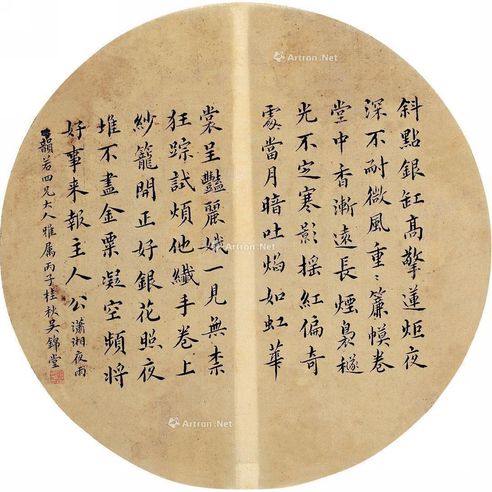 斜點銀缸高擎蓮炬夜
深不耐微風重〻簾幙卷
堂中香漸遠長煙裊穟
光不定寒影搖紅偏奇
處當月暗吐焰如虹華
裳呈豔麗娥一見無柰
狂踪試煩他纖手卷上
紗籠開正好銀花照夜
堆不盡金粟凝空頻將
好事来報主人公 瀟湘夜雨
韻若四兄大人雅属丙子桂秋吴錦堂
Artron.Net
Artron.Net
Artron.Net
Artron.Net